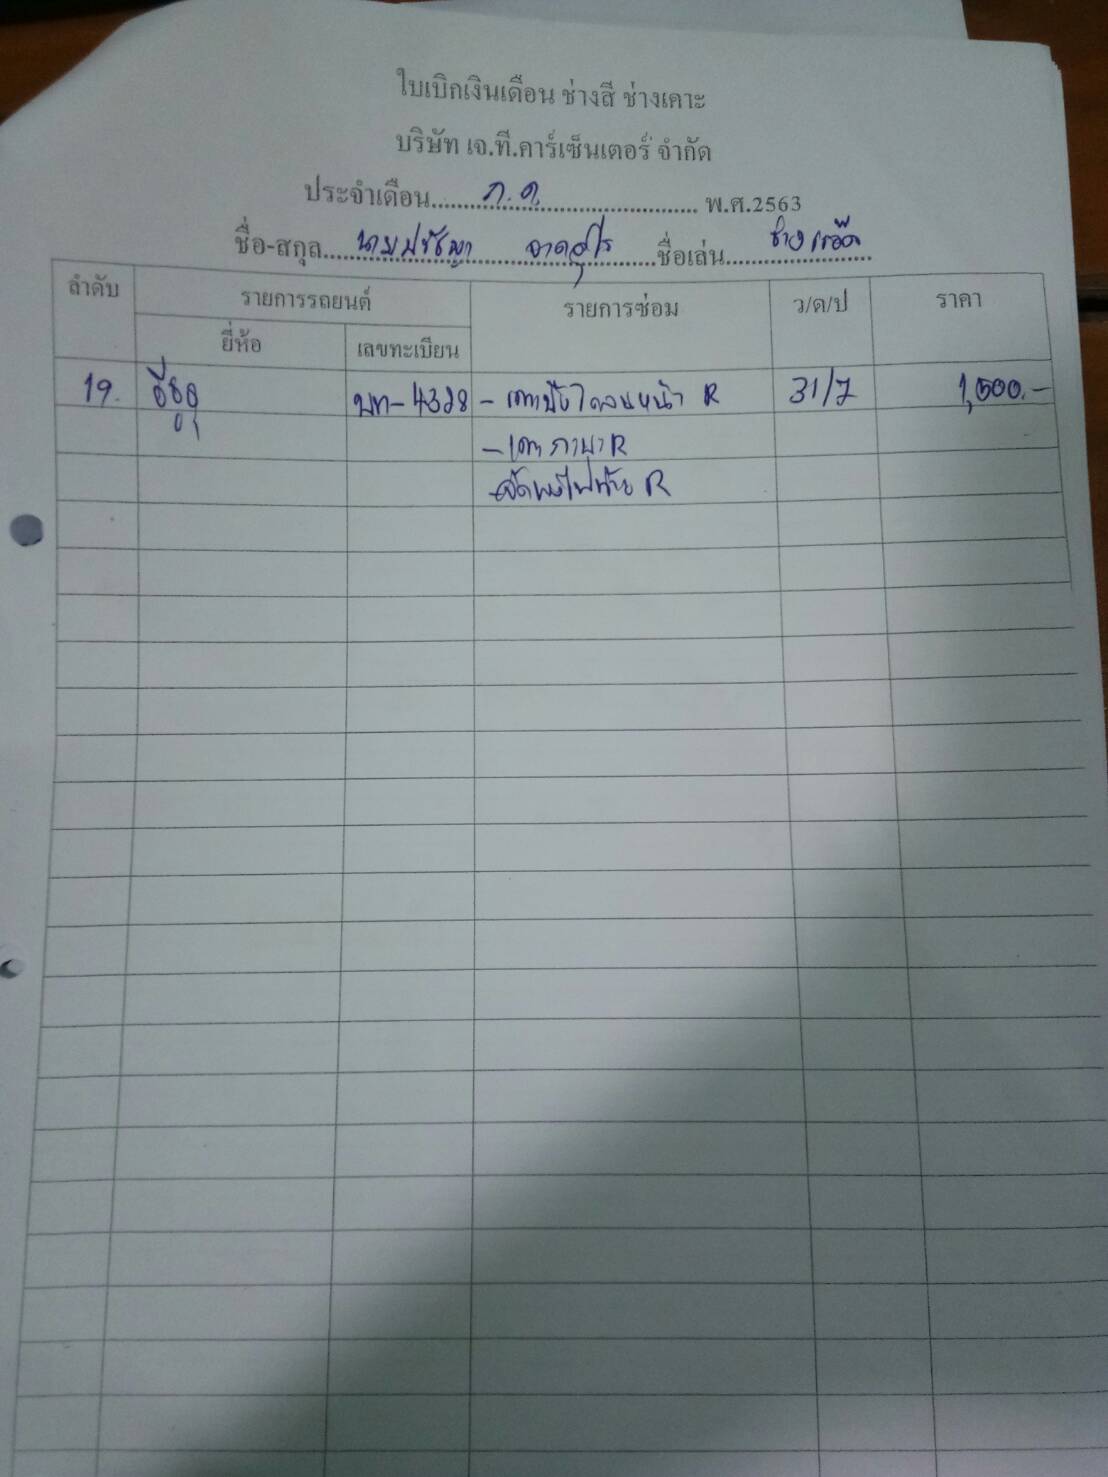 ใบเบิกเงินเดือน ช่างสี ช่างเคาะ
บริษัท เจ.ที.คาร์เซ็นเตอร์ จำกัด
ประจำเดือน ก.ค. พ.ศ.2563
ชื่อ-สกุล นายปรัชญา ชื่อเล่น ช่าง
ลำดับ รายการรถยนต์ รายการซ่อม ว/ด/ป ราคา
ยี่ห้อ เลขทะเบียน
19. อีซูซุ บท-4328 - เคาะบังโคลนหน้า R 31/7 1,500.-
- เคาะ R
ไฟท้าย R